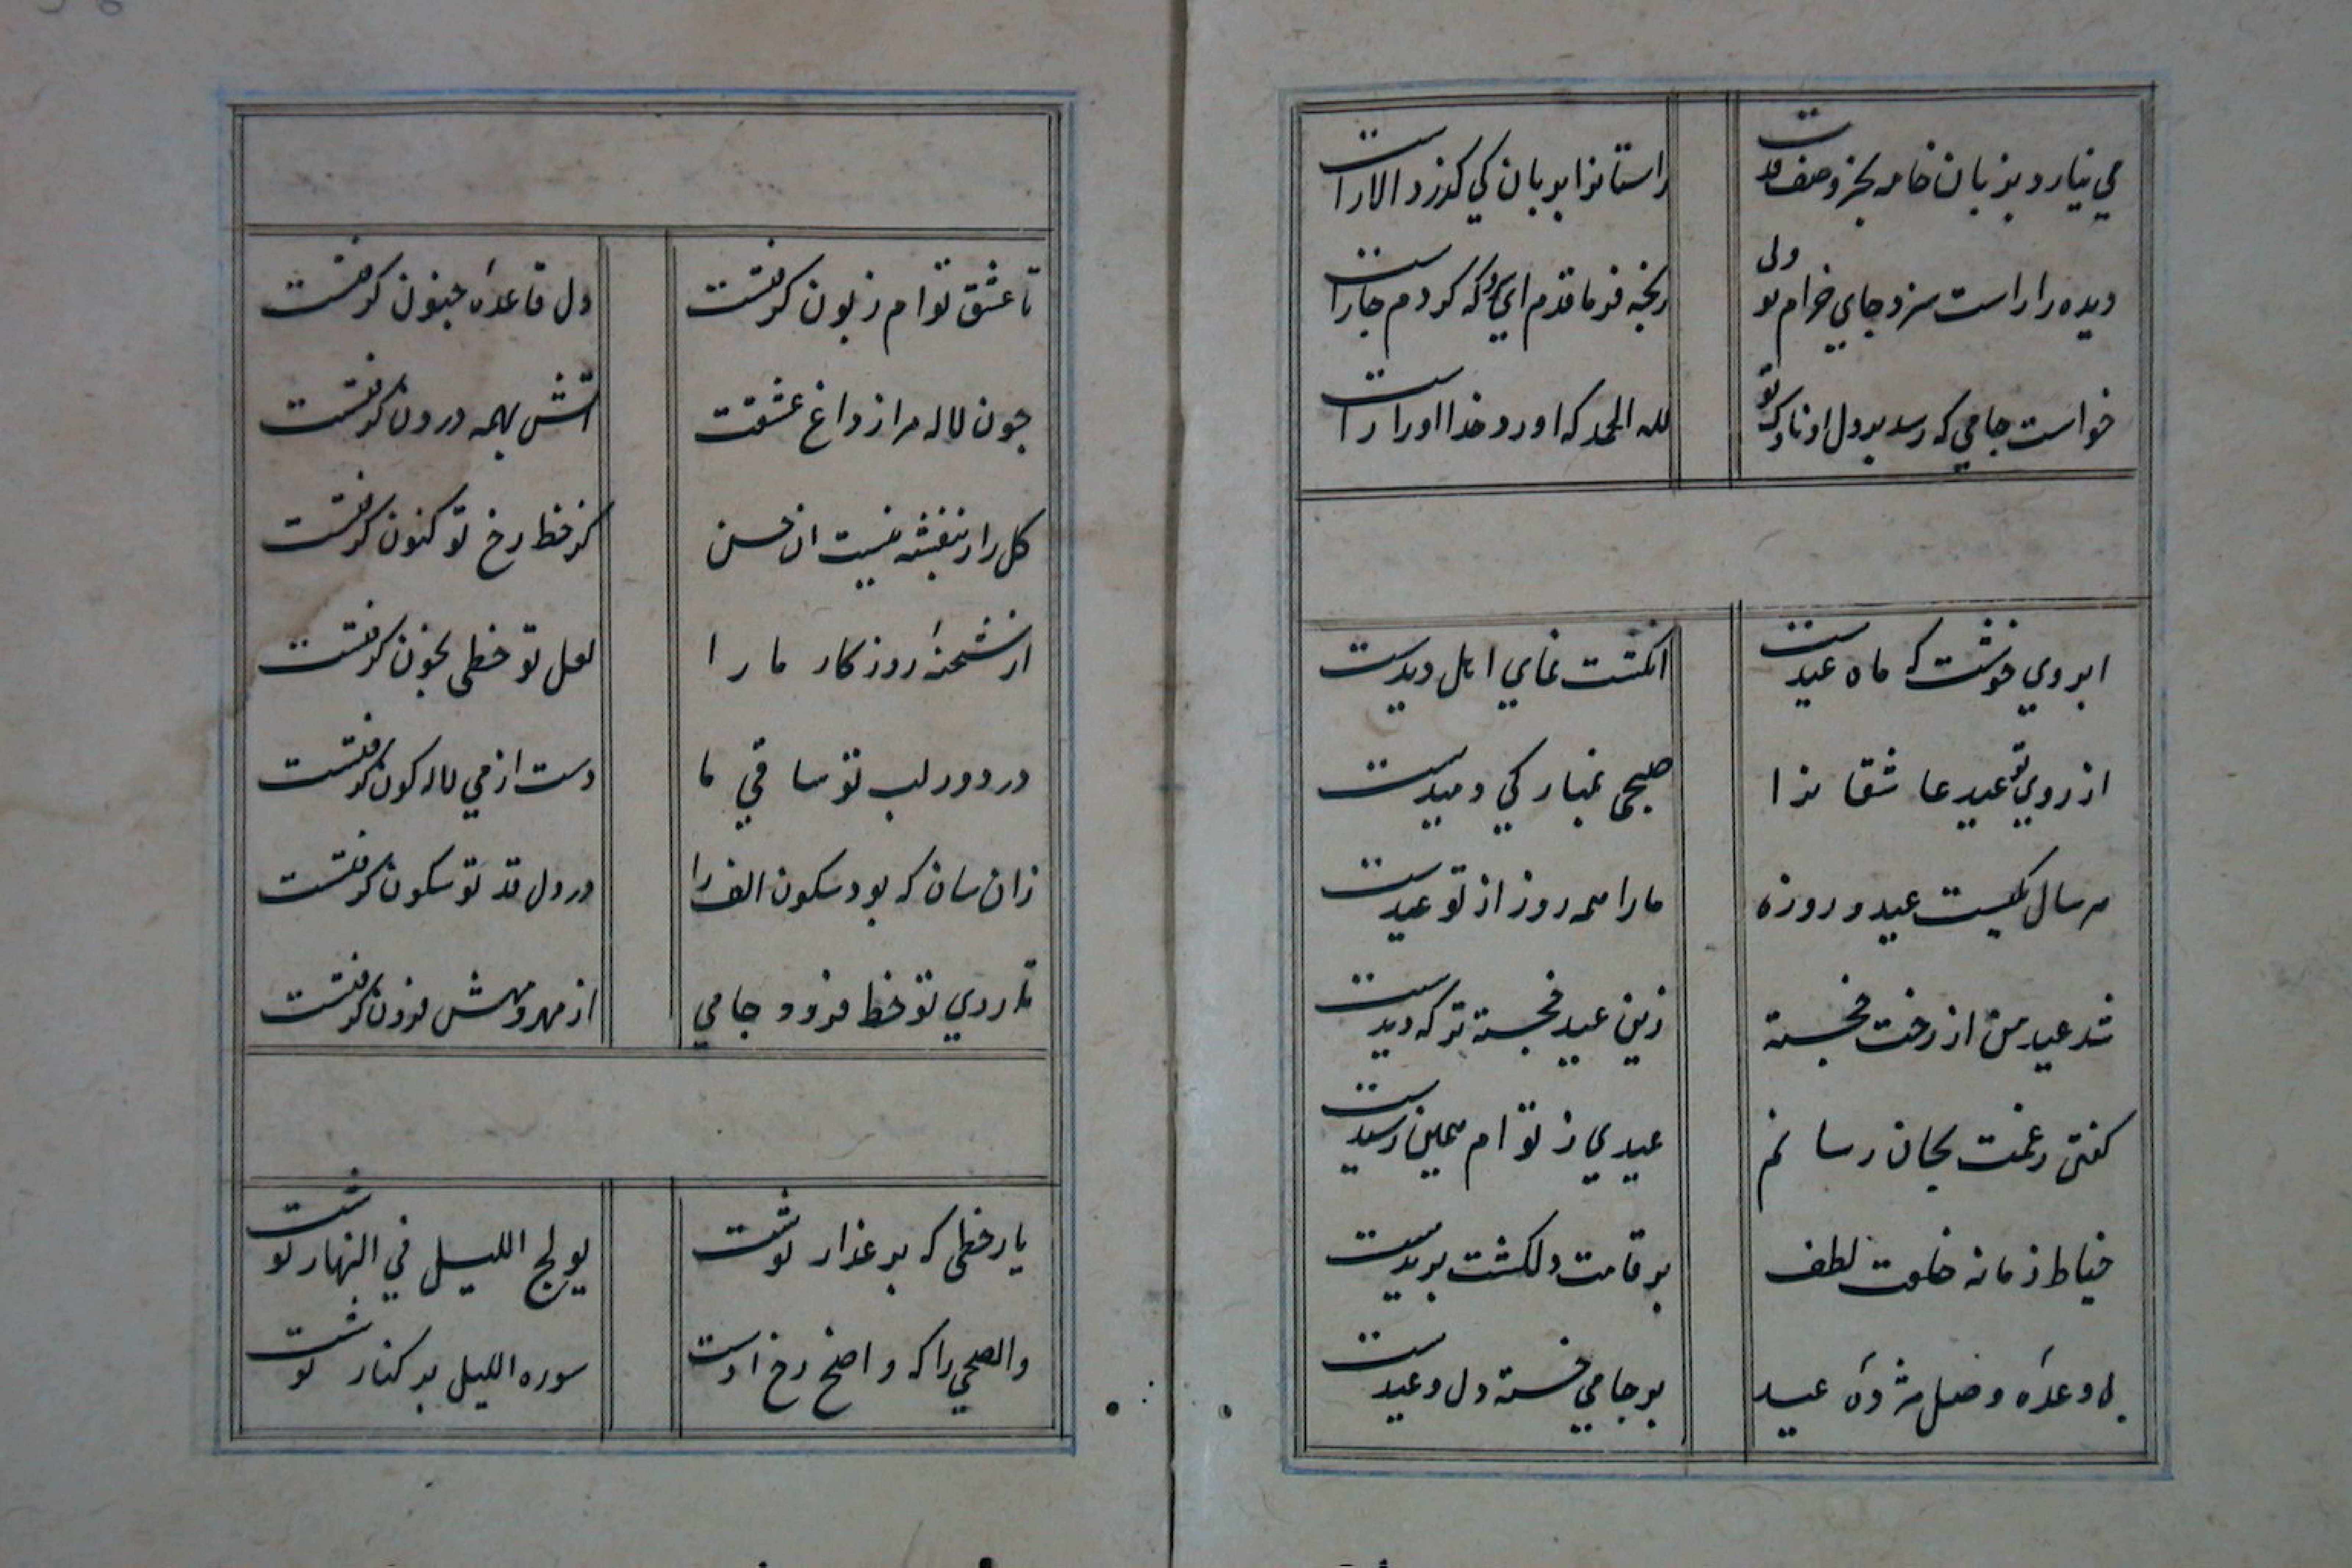 می نیارد بزبان خامه بجز وصف قدت
راستانرا بزبان کی گذرد الا راست
دیده را راست سزد جای خرام تو ولی
رنجه فرما قدم ای سرو که کردم جا راست
خواست جامی که رسد بر دل او ناوک تو
لله الحمد که اورد خدا او را راست
ابروی خوشت که ماه عیدست
انکشت نمای اهل دیدست
از روی تو عید عاشقانرا
صبحی بمبارکی دمیدست
هر سال یکیست عید و روزه
ما را همه روز از تو عیدست
شد عید من از رخت خجسته
زین عید خجسته تر که دیدست
کفتی زغمت بجان رسانم
عیدی ز توام همین رسیدست
خیاط زمانه خلعت لطف
بر قامت دلکشت بریدست
بی وعدهٔ وصل مژدهٔ عید
بر جامی خسته دل وعیدست
تا عشق توام زبون کرفتست
دل قاعدهٔ جنون کرفتست
جون لاله مرا ز داغ عشقت
اتش بهمه درون کرفتست
کل را ز بنفشه نیست ان حسن
کز خط رخ تو کنون کرفتست
از شحنهٔ روزکار ما را
لعل تو خطی بخون کرفتست
در دور لب تو ساقی ما
دست از می لاله کون کرفتست
زان سان که بود سکون الف را
در دل قد تو سکون کرفتست
تا روی تو خط فزود جامی
از مهر و مهش فزون کرفتست
یار خطی که بر عذار نوشت
یولج اللیل فی النهار نوشت
والضحی را که واضح رخ اوست
سوره اللیل بر کنار نوشت